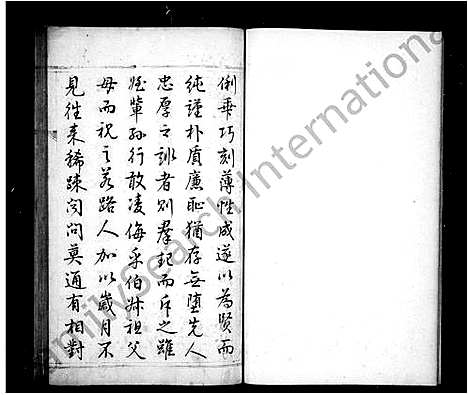 俐乖巧刻薄性成遂以為賢而
純謹朴盾廉恥猶存無墮先人
忠厚之訓者則羣起而斥之雖
姪輩孫行敢凌侮乎伯叔祖父
母而視之若路人加以歲月不
見往来稀踈问問莫通有相對
FamilySearch International